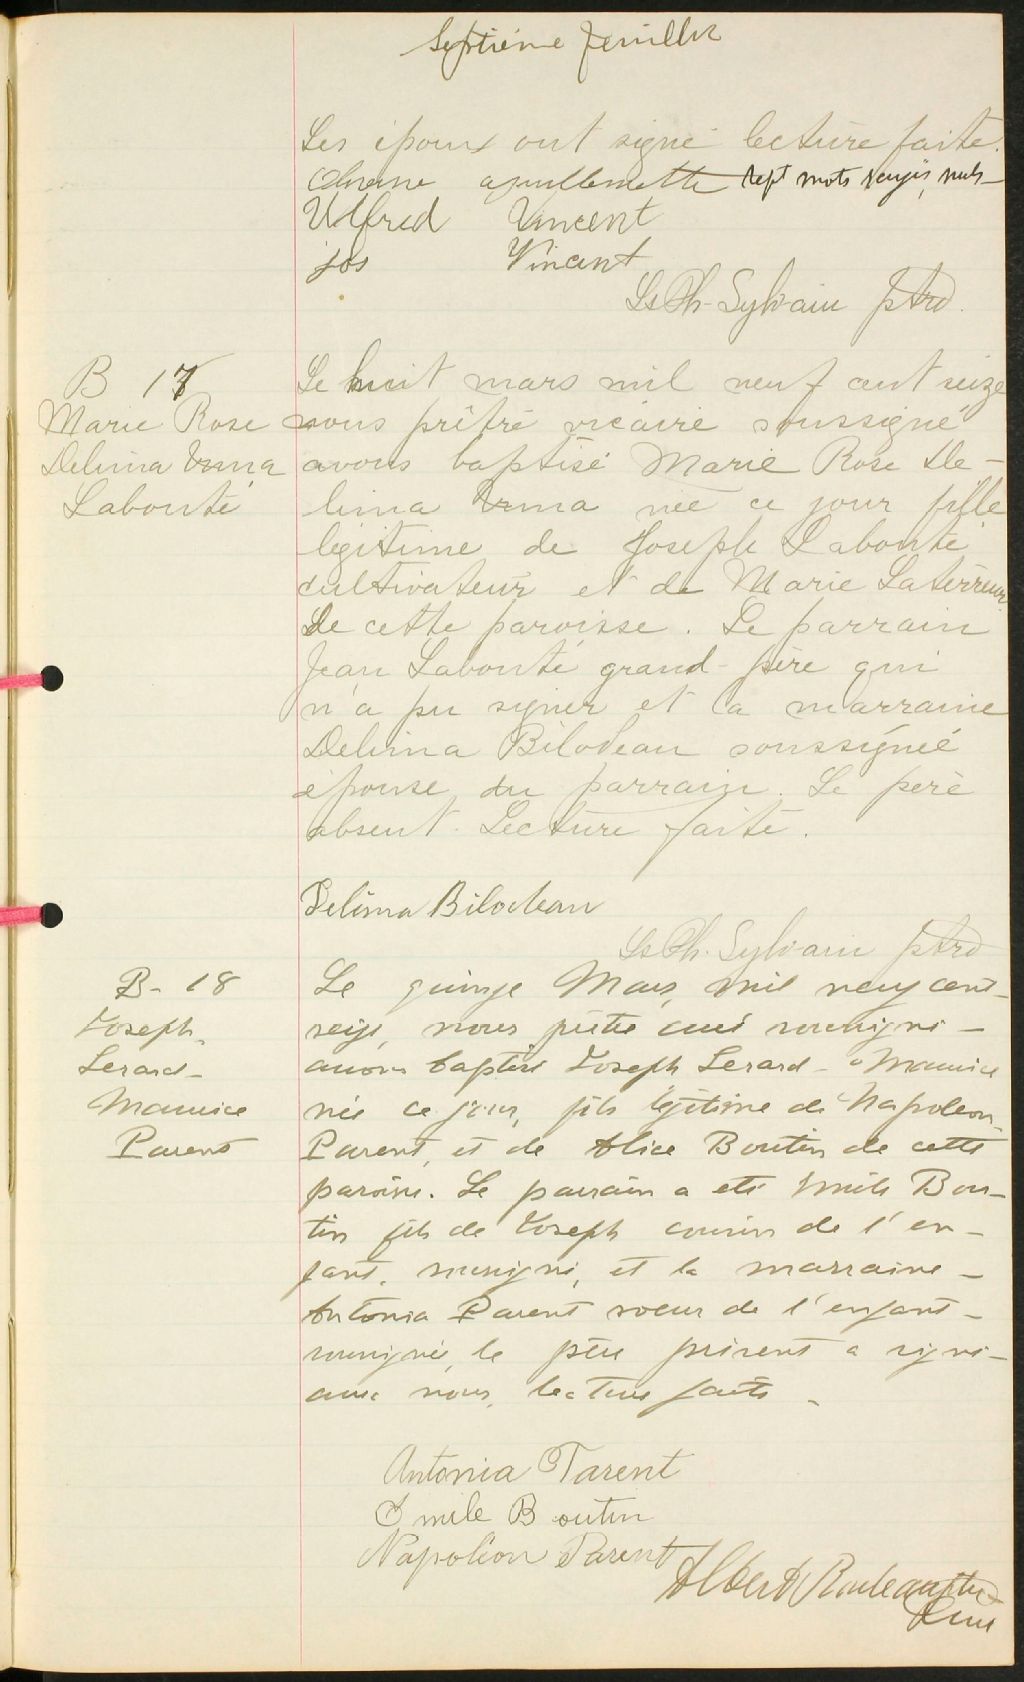 Septième feuillet
Les époux ont signé lecture faite.
sept mots rayés nuls
Ulfred Vincent
jos Vincent
Ls Ph. Sylvain ptre
B 17
Marie Rose
Delima Irma
Labonté
Le huit mars mil neuf cent seize
nous prêtre vicaire soussigné
avons baptisé Marie Rose De-
lima Irma née ce jour fille
légitime de Joseph Labonté
cultivateur et de Marie Laterreur
de cette paroisse. Le parrain
Jean Labonté grand-père qui
n'a pu signer et la marraine
Delima Bilodeau soussignée
épouse du parrain. Le père
absent. Lecture faite.
Delima Bilodeau
Ls Ph. Sylvain ptre
B- 18
Joseph
Gerard-
Maurice
Parent
Le quinze Mars, mil neuf cent-
seize, nous prêtre curé soussigné-
avons baptisé Joseph Gerard-Maurice
née ce jour, fils légitime de Napoleon
Parent, et de Alice Boutin de cette
paroisse. Le parrain a été Emile Bou-
tin fils de Joseph cousin de l'en-
fant, soussigné, et la marraine-
Antonia Parent soeur de l'enfant-
soussignée, le père présent a signé-
avec nous, lecture faite-
Antonia Parent
Emile Boutin
Napoléon Parent
Albert Rouleau ptre
Curé